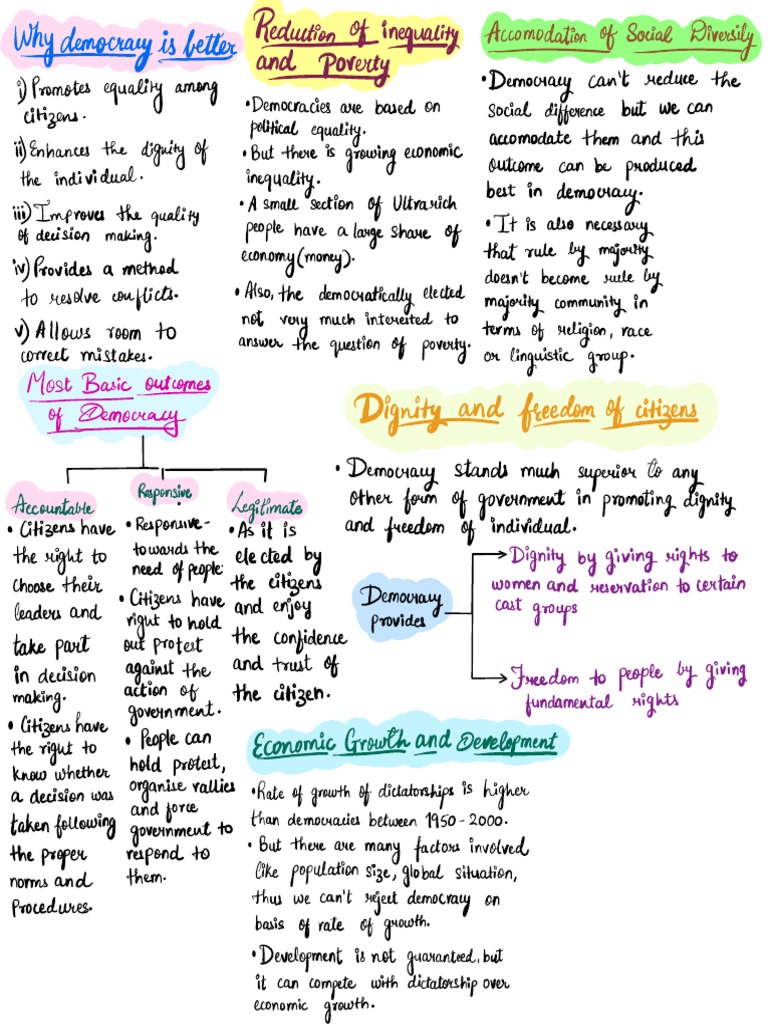 Why democracy is better
i) Promotes equality among
citizens.
ii) Enhances the dignity of
the individual.
iii) Improves the quality
of decision making.
iv) Provides a method
to resolve conflicts.
v) Allows room to
correct mistakes.
Reduction of inequality
and Poverty
• Democracies are based on
political equality.
• But there is growing economic
inequality.
• A small section of Ultrarich
people have a large share of
economy (money).
• Also, the democratically elected
not very much interested to
answer the question of poverty.
Accomodation of Social Diversily
• Democracy can't reduce the
social difference but we can
accomodate them and this
outcome can be produced
best in democracy.
• It is also necessary
that rule by majority
doesn't become rule by
majority community in
terms of religion, race
or linguistic group.
Most Basic outcomes
of Democracy
Accountable
• Citizens have
the right to
choose their
leaders and
take part
in decision
making.
• Citizens have
the right to
know whether
a decision was
taken following
the proper
norms and
procedures.
Responsive
• Responsive-
towards the
need of people
• Citizens have
right to hold
out protest
against the
action of
government.
• People can
hold protest,
organise rallies
and force
government to
respond to
them.
Legitimate
• As it is
elected by
the citizens
and enjoy
the confidence
and trust of
the citizen.
Dignity and freedom of citizens
• Democracy stands much superior to any
other form of government in promoting dignity
and freedom of individual.
Democracy
provides
Dignity by giving rights to
women and reservation to certain
cast groups
Freedom to people by giving
fundamental rights
Economic Growth and Development
• Rate of growth of dictatorships is higher
than democracies between 1950-2000.
• But there are many factors involved
like population size, global situation,
thus we can't reject democracy on
basis of rate of growth.
• Development is not guaranteed, but
it can compete with dictatorship over
economic growth.